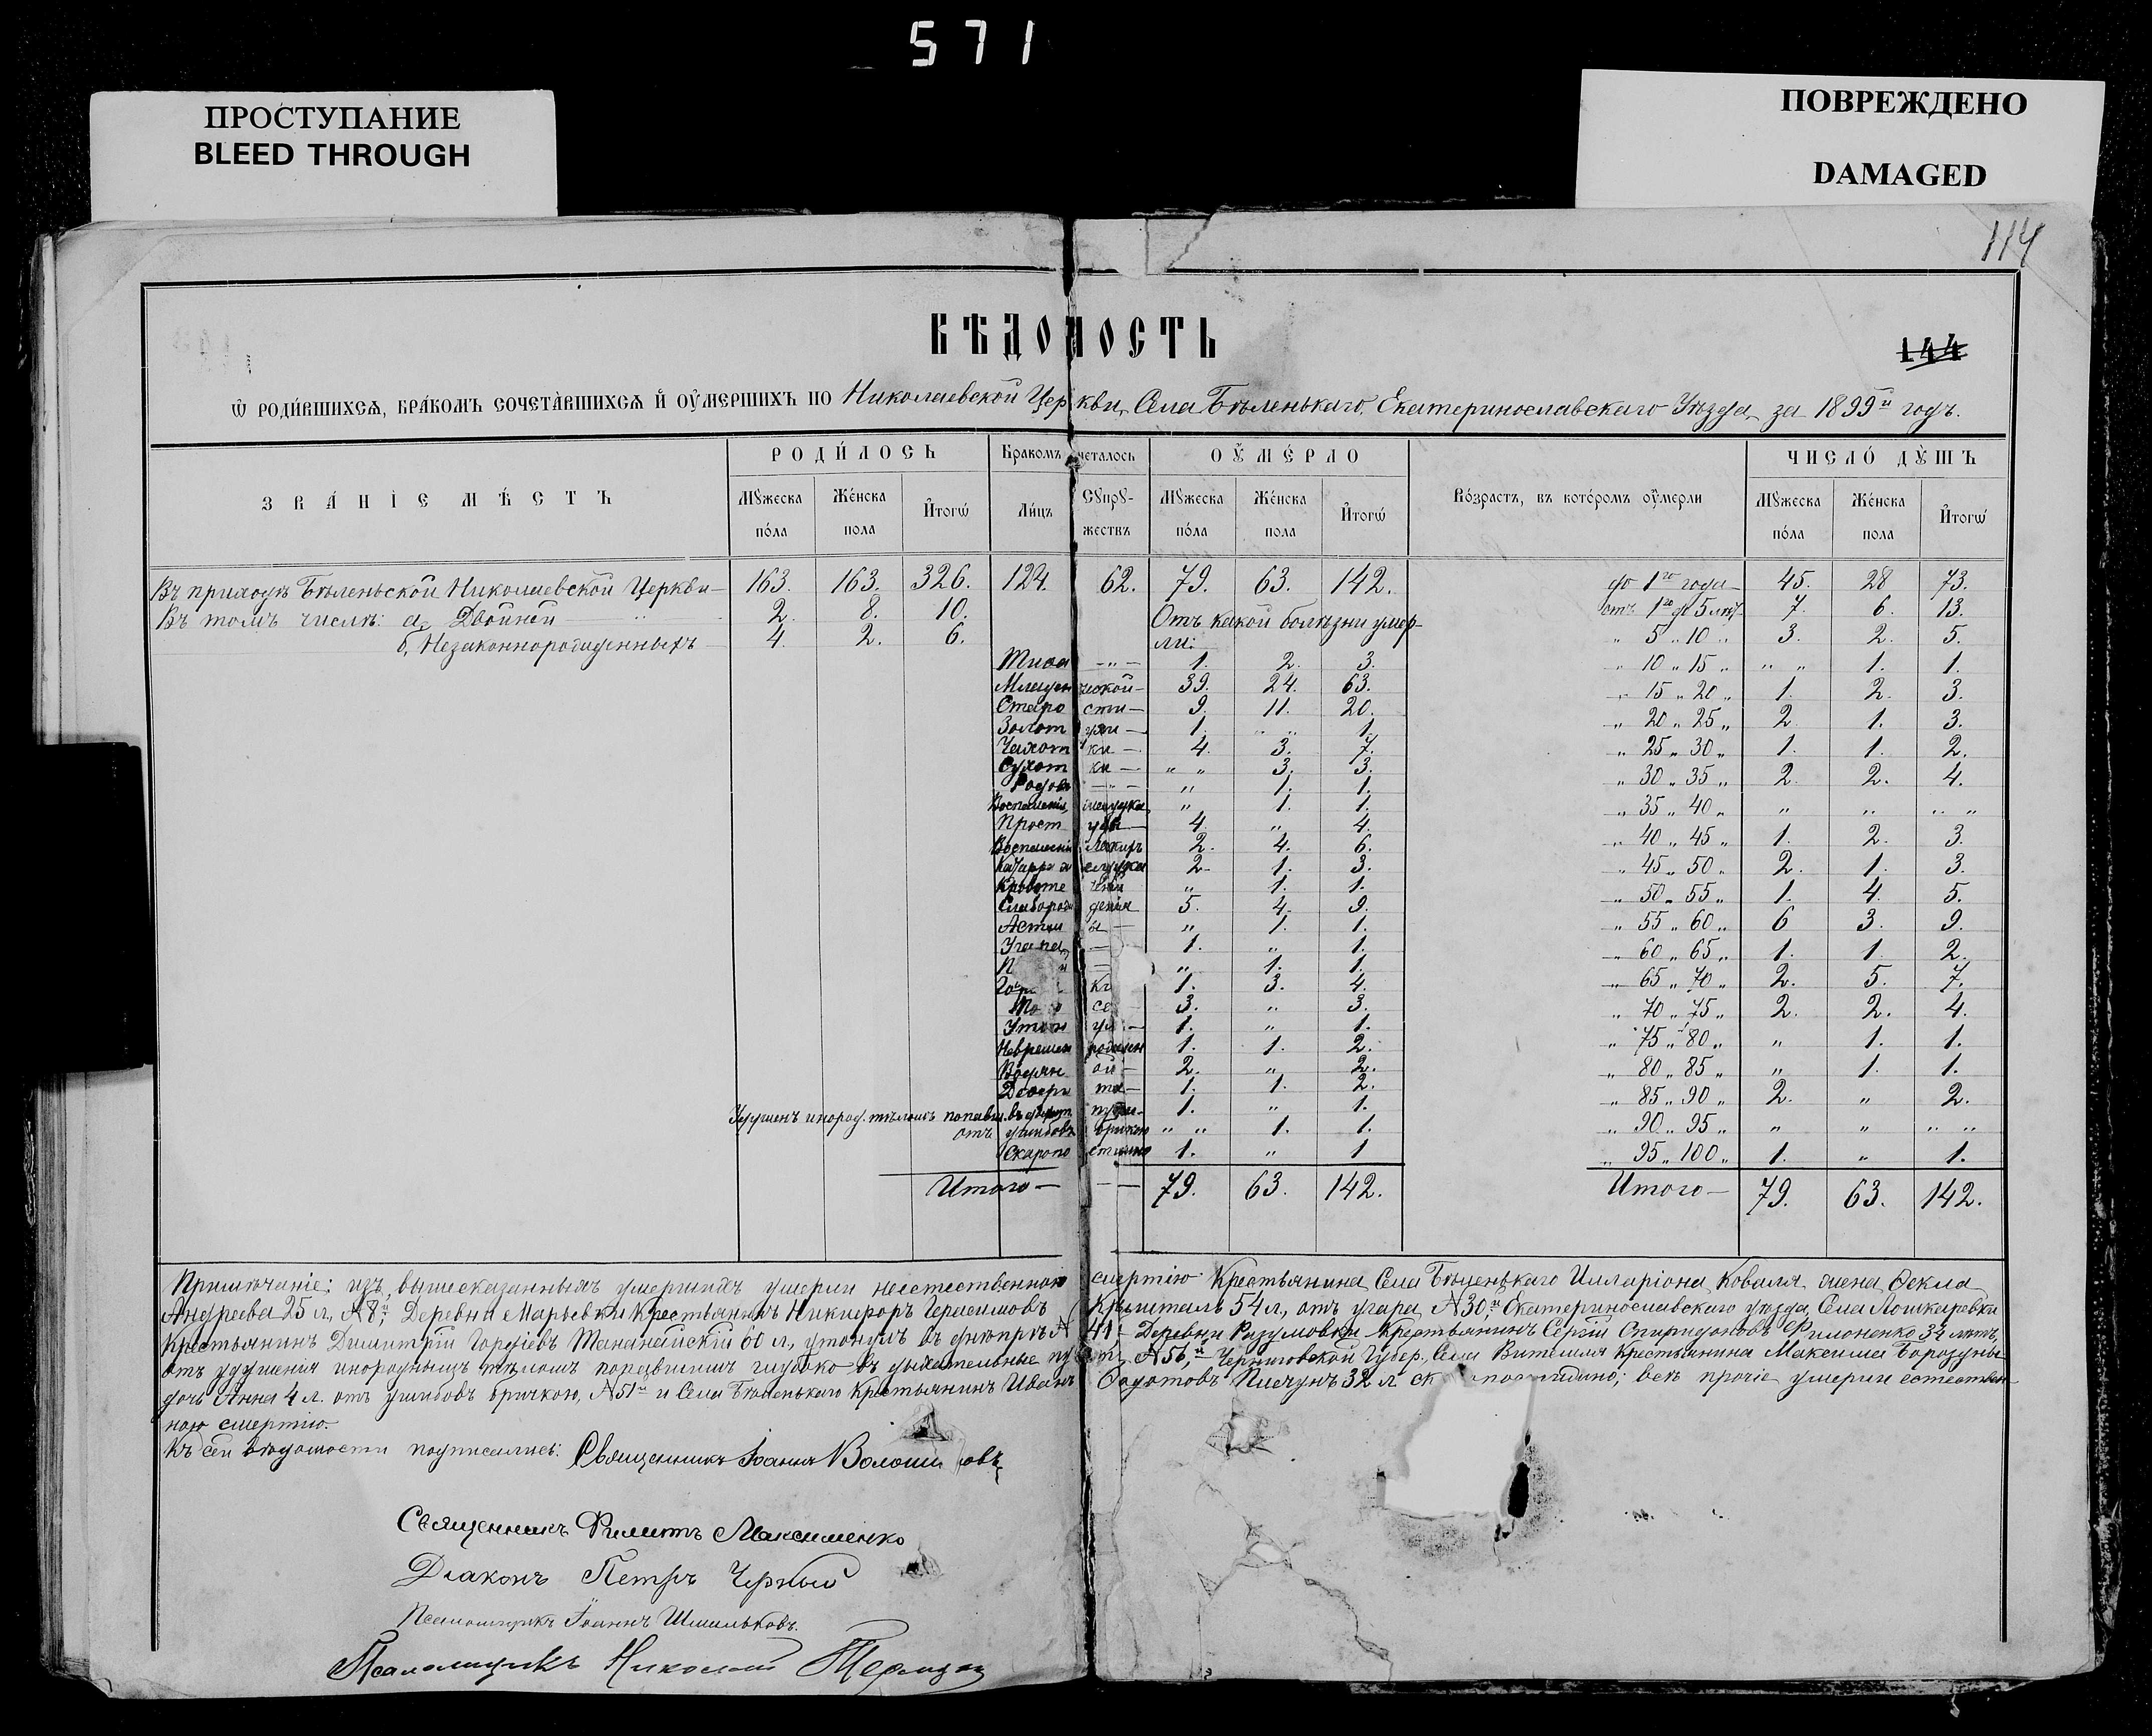 571
ПРОСТУПАНИЕ
BLEED THROUGH
ПОВРЕЖДЕНО
DAMAGED
114
ВѢДОМОСТЬ
144
Ѡ РОДИ́ВШИХСѦ, БРА́КОМЪ СОЧЕТА́ВШИХСѦ И҆ ОУ҆МЕРШИХЪ ПО Николаевской Церкви, Села Бѣленькаго, Екатеринославскаго Уѣзда, за 1899й годъ.
ЗВА́НІЕ МѢ́СТЪ
РОДИ́ЛОСЬ
Бракомъ сочеталось
ОУ҆МЕ́РЛО
Во́зрастъ, въ кото́ромъ оу҆́мерли
ЧИСЛО́ ДꙊ́ШЪ
Мꙋжеска по́ла
Же́нска пола
И҆того̀
Ли́цъ
Сꙋпрꙋ-жествъ
Мꙋжеска по́ла
Же́нска пола
И҆того̀
Мꙋжеска по́ла
Же́нска пола
И҆того̀
Въ приходѣ Бѣленьской Николаевской Церкви — 163. 163. 326. 124. 62. 79. 63. 142. до 1го года — 45. 28 73.
Въ томъ числѣ: а, Двойней 2. 8. 10. Отъ какой болѣзни умер- отъ 1го до 5 лѣтъ 7. 6. 13.
б, Незаконнорожденныхъ — 4. 2. 6. ли: „ 5 „ 10 „ 3. 2. 5.
Тифа — „ — 1. 2. 3. „ 10 „ 15 „ „ „ 1. 1.
Младенческой — 39. 24. 63. „ 15 „ 20 „ 1. 2. 3.
Старости — 9. 11. 20. „ 20 „ 25 „ 2 1. 3.
Золотухи — 1. „ „ 1. „ 25 „ 30 „ 1. 1. 2.
Чахотки — 4. 3. 7. „ 30 „ 35 „ 2. 2. 4.
Сухотки — „ „ 3. 3. „ 35 „ 40 „ „ „ „ „
Родовъ — „ — „ 1. 1. „ 40 „ 45 „ 1. 2. 3.
Воспаленія желудка „ 1. 1. „ 45 „ 50 „ 2. 1. 3.
Простуды — 4. „ 4. „ 50 „ 55 „ 1. 4. 5.
Воспаленія Легкихъ 2. 4. 6. „ 55 „ 60 „ 6 3. 9.
Катарра желудка 2. 1. 3. „ 60 „ 65 „ 1. 1. 2.
Кровотеченія „ 1. 1. „ 65 „ 70 „ 2. 5. 7.
Слаборожденія 5. 4. 9. „ 70 „ 75 „ 2. 2. 4.
Астмы — „ 1. 1. „ 75 „ 80 „ „ 1. 1.
Угара — 1. „ 1. „ 80 „ 85 „ „ 1. 1.
„ 1. 1. „ 85 „ 90 „ 2. „ 2.
1. 3. 4. „ 90 „ 95 „ „ „ „ „
3. „ 3. „ 95 „ 100 „ 1. „ 1.
1. „ 1.
Неврем. рожден 1. 1. 2.
Водяной — 2. „ 2.
1. 1. 2.
инород. тѣломъ 1. „ 1.
отъ ушибовъ бричкою „ „ 1. 1.
Скоропостижно 1. „ 1
Итого — — — 79. 63. 142. Итого — 79. 63. 142.
Примѣчаніе: изъ вышесказанныхъ умершихъ умерли неестественною смертію Крестьянина Села Бѣленькаго Илларіона Коваля жена Ѳекла
Андреева 25 л., №8й; Деревни Марьевки Крестьянинъ Никифоръ Герасимовъ 54 л., отъ угара, №30й Екатеринославскаго уѣзда, Села Лошкаревки
Крестьянинъ Димитрій Гордѣевъ 60 л., утонулъ въ днѣпрѣ № 41, Деревни Разумовки Крестьянинъ Сергій Спиридоновъ Филоненко 34 лѣтъ,
отъ удушенія инороднымъ тѣломъ попавшимъ глубоко въ дыхательные пути, №56,й Черниговской Губер., Села Крестьянина Максима Бороздны
дочь Анна 4 л. отъ ушибовъ бричкою, №51й и Села Бѣленькаго Крестьянинъ Иванъ Писчунъ 32 л. скоропостижно; всѣ прочіе умерли естествен-
ною смертію.
Къ сей вѣдомости подписались: Священникъ Іоаннъ Волошиновъ
Священникъ Филиппъ Максименко
Діаконъ Петръ Черный
Псаломщикъ Іоаннъ Шмыльковъ.
Псаломщикъ Николай